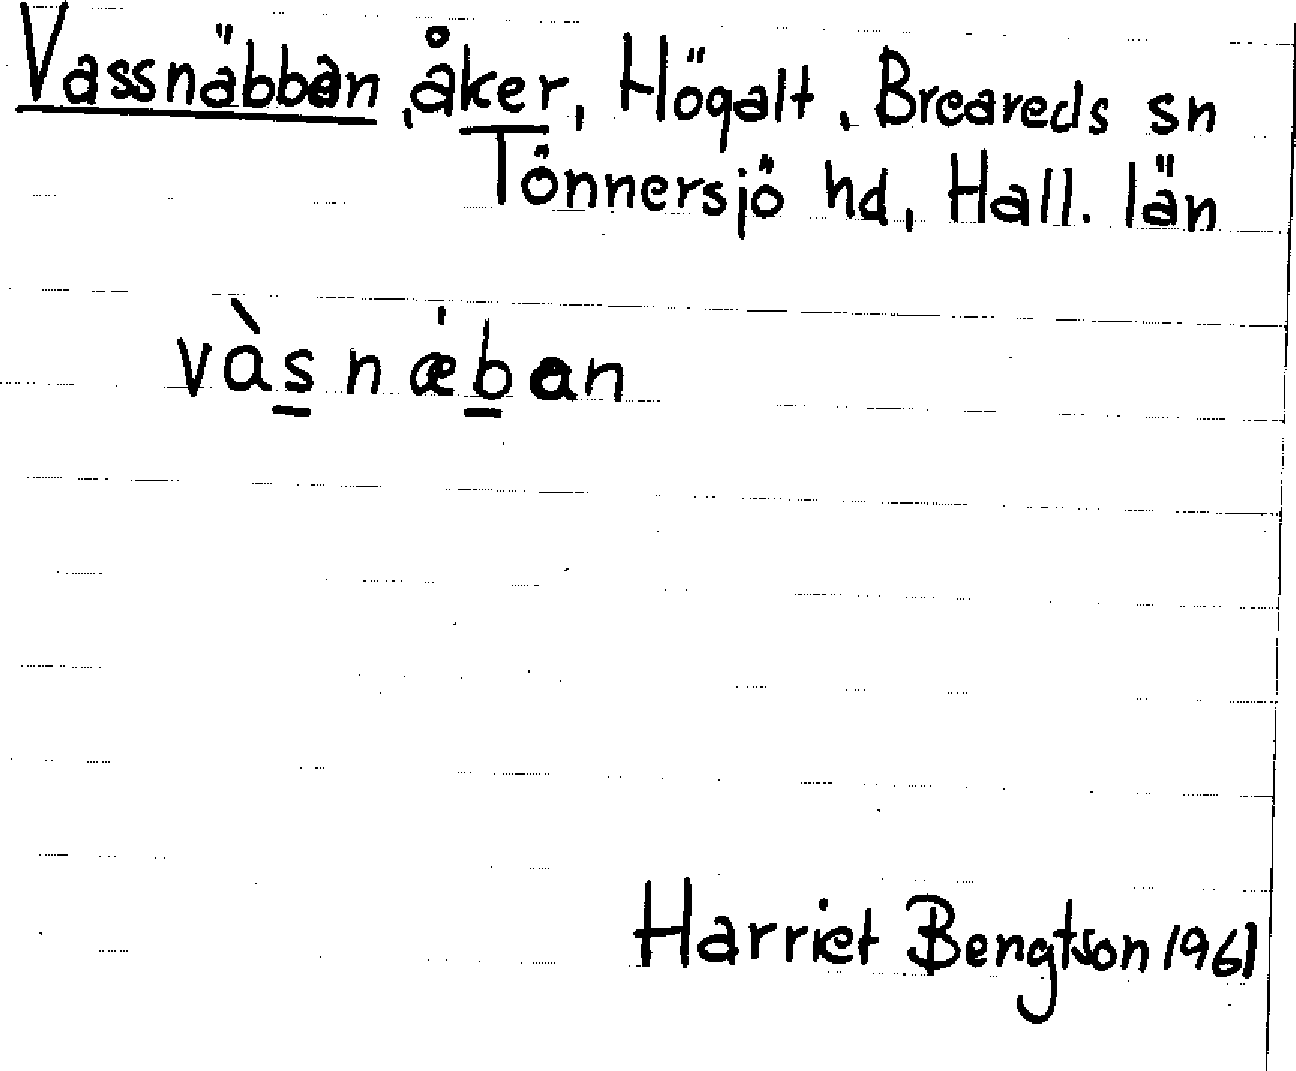 Vassnäbban, åker, Högalt, Breareds sn
Tönnersjö hd, Hall. län
vàs̲næ̍b̲an
Harriet Bengtson 1961